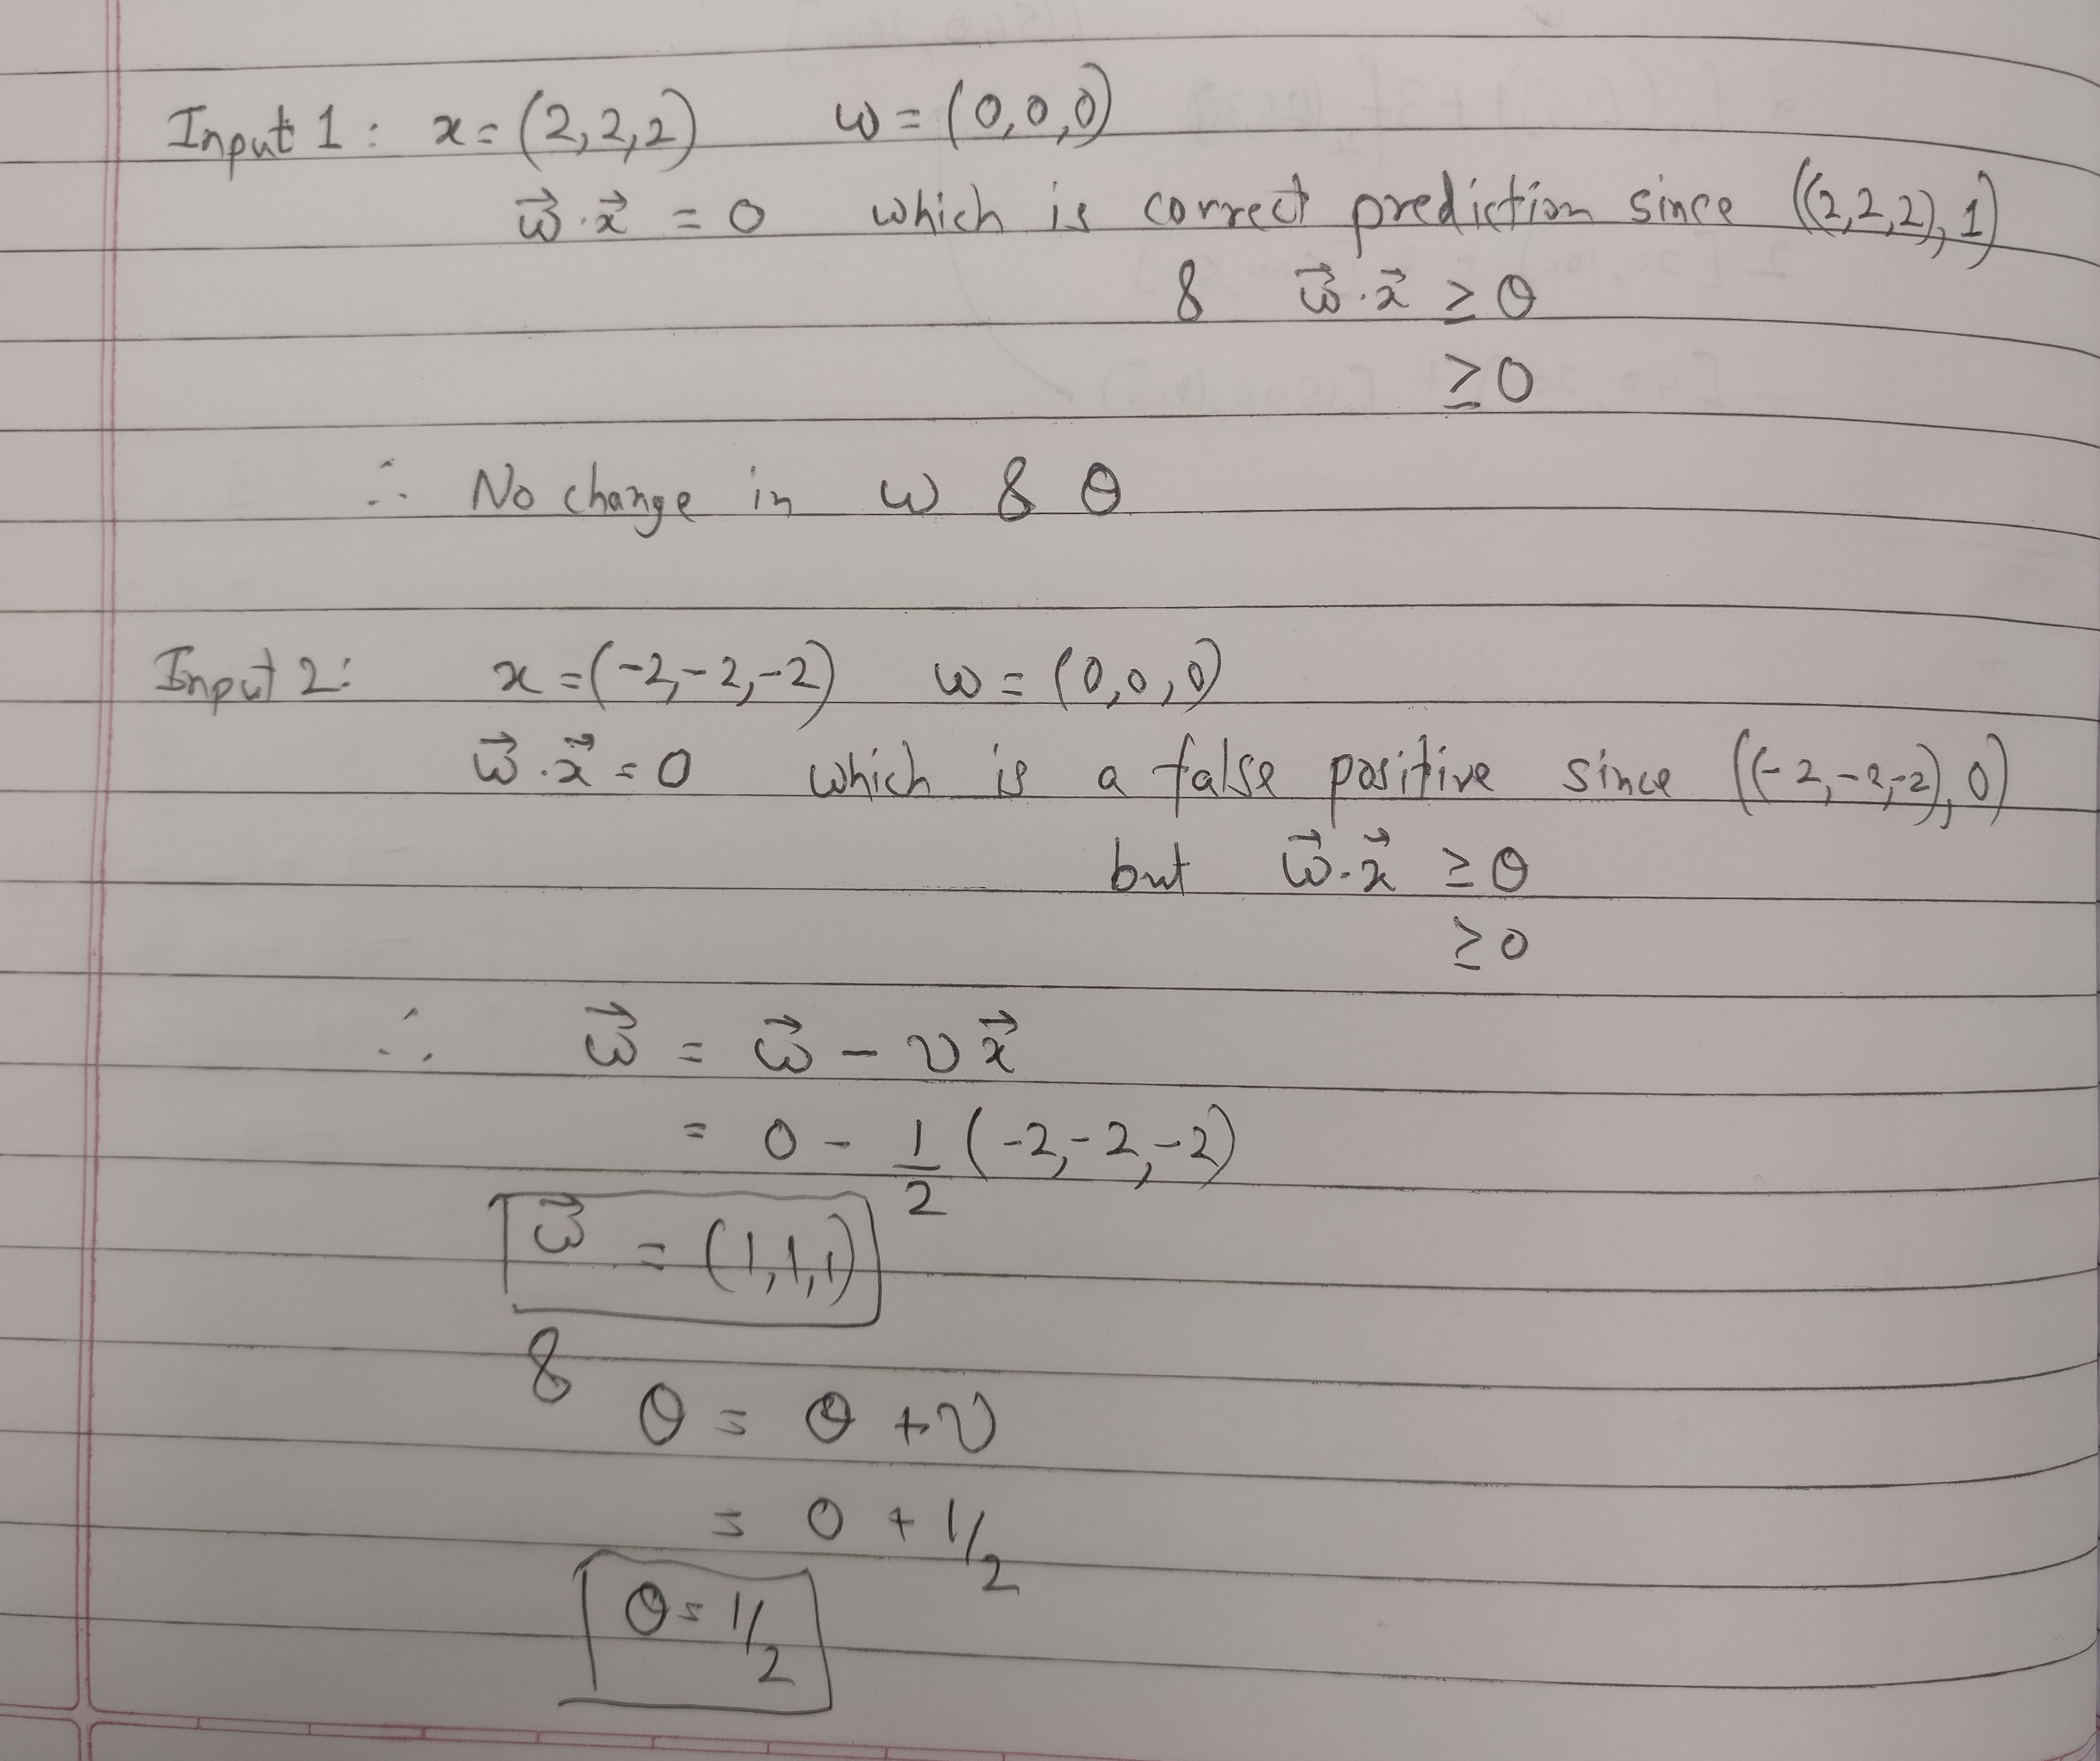 Input 1: x = (2,2,2) w = (0,0,0)
w⃗ . x⃗ = 0 which is correct prediction since ((2,2,2), 1)
& w⃗ . x⃗ ≥ θ
≥ 0
∴ No change in w & θ
Input 2: x = (-2,-2,-2) w = (0,0,0)
w⃗ . x⃗ = 0 which is a false positive since ((-2,-2,-2), 0)
but w⃗ . x⃗ ≥ θ
≥ 0
∴ w⃗ = w⃗ - ν x⃗
= 0 - 1/2 (-2,-2,-2)
w⃗ = (1,1,1)
&
θ = θ + ν
= 0 + 1/2
θ = 1/2